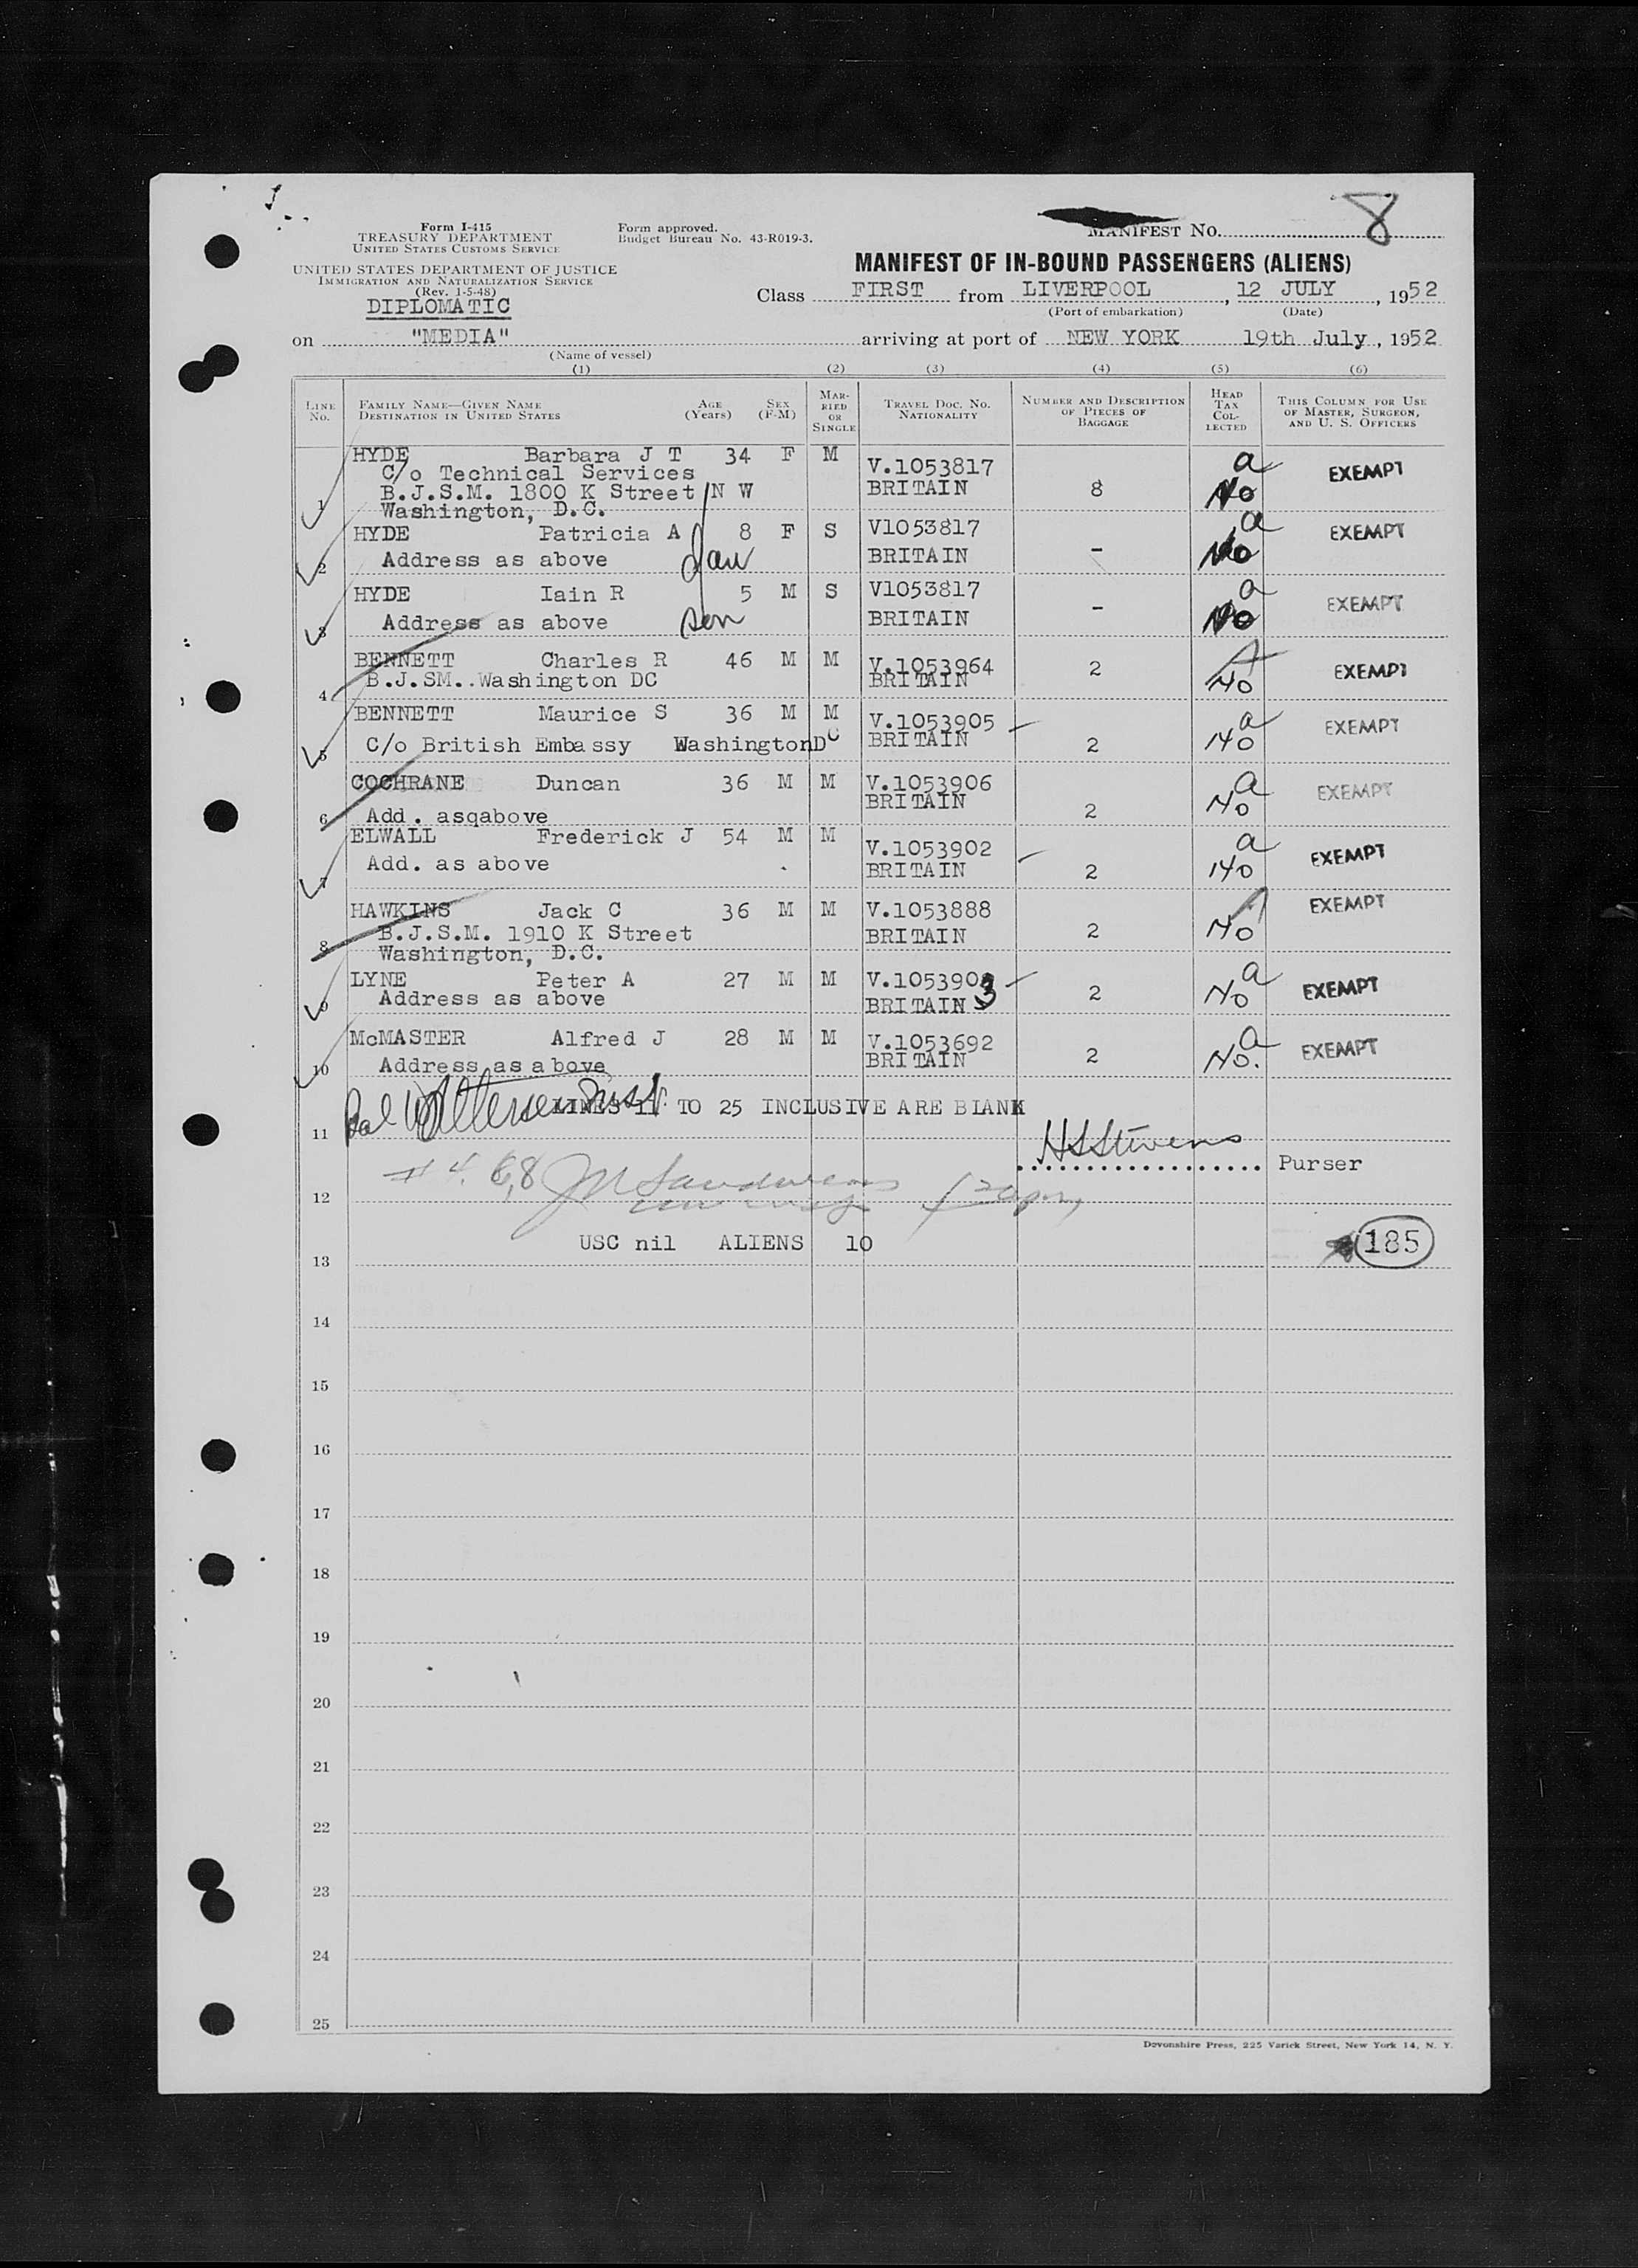 8
Form I-415
TREASURY DEPARTMENT
UNITED STATES CUSTOMS SERVICE
Form approved.
Budget Bureau No. 43-R019-3.
MANIFEST No.
UNITED STATES DEPARTMENT OF JUSTICE
IMMIGRATION AND NATURALIZATION SERVICE
(Rev. 1-5-48)
DIPLOMATIC
MANIFEST OF IN-BOUND PASSENGERS (ALIENS)
Class FIRST from LIVERPOOL, 12 JULY, 1952
(Port of embarkation) (Date)
on "MEDIA" arriving at port of NEW YORK 19th July, 1952
(Name of vessel)
(1) (2) (3) (4) (5) (6)
LINE No. FAMILY NAME—GIVEN NAME DESTINATION IN UNITED STATES AGE (Years) SEX (F-M) MARRIED OR SINGLE TRAVEL DOC. NO. NATIONALITY NUMBER AND DESCRIPTION OF PIECES OF BAGGAGE HEAD TAX COLLECTED THIS COLUMN FOR USE OF MASTER, SURGEON, AND U. S. OFFICERS
HYDE Barbara J T 34 F M V.1053817 a EXEMPT
C/o Technical Services
1 B.J.S.M. 1800 K Street N W BRITAIN 8 No
Washington, D.C.
HYDE Patricia A 8 F S V1053817 a EXEMPT
2 Address as above dau BRITAIN - No
HYDE Iain R 5 M S V1053817 a EXEMPT
3 Address as above son BRITAIN - No
BENNETT Charles R 46 M M V.1053964 2 A EXEMPT
4 B.J.SM..Washington DC BRITAIN No
BENNETT Maurice S 36 M M V.1053905 a EXEMPT
5 C/o British Embassy WashingtonDC BRITAIN 2 No
COCHRANE Duncan 36 M M V.1053906 a EXEMPT
6 Add. asqabove BRITAIN 2 No
ELWALL Frederick J 54 M M V.1053902 a EXEMPT
7 Add. as above BRITAIN 2 No
HAWKINS Jack C 36 M M V.1053888 EXEMPT
8 B.J.S.M. 1910 K Street BRITAIN 2 No
Washington, D.C.
LYNE Peter A 27 M M V.105390 3 a EXEMPT
9 Address as above BRITAIN 2 No
McMASTER Alfred J 28 M M V.1053692 a EXEMPT
10 Address as above BRITAIN 2 No.
LINES 11 TO 25 INCLUSIVE ARE BLANK
11 HSStevens
Purser
# 4. 6,8
12
USC nil ALIENS 10 185
13
14
15
16
17
18
19
20
21
22
23
24
25
Devonshire Press, 225 Varick Street, New York 14, N. Y.